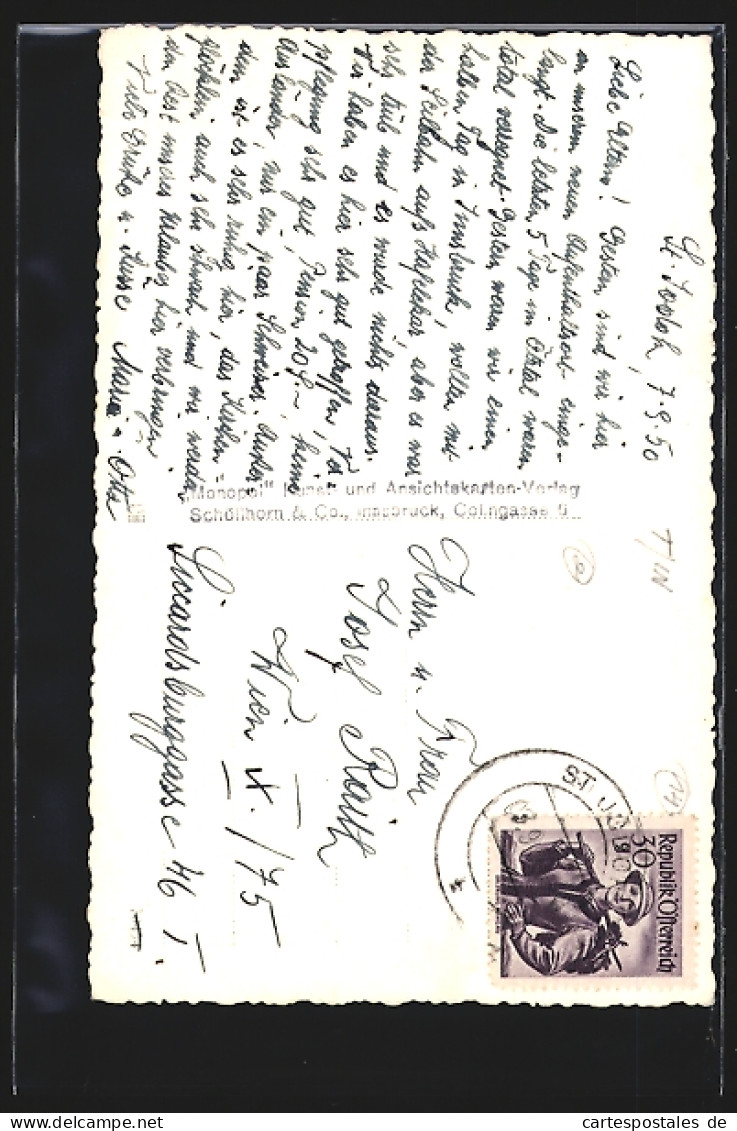 St. Jodok, 7.9.50
Liebe Eltern! Gestern sind wir hier
an unserem neuen Aufenthaltsort einge-
langt. Die letzten 5 Tage im Ötztal waren
total verregnet. Gestern waren wir einen
halben Tag in Innsbruck, wollten mit
der Seilbahn aufs Hafelekar, aber es war
sehr trüb und es wurde nichts daraus.
Wir haben es hier sehr gut getroffen, Ver-
pflegung sehr gut, Pension 20 S, keine
Ausländer, nur ein paar Schweizer. Außer-
dem ist es sehr ruhig hier, das Kühlen
auch sehr schmal und wir werden
den Rest unseres Urlaubes hier verbringen
Viele Grüße u. Küsse Maria u. Otto
„Monopol" Kunst- und Ansichtskarten-Verlag
Schöllhorn & Co., Innsbruck, Colingasse 5
T/IN
Herrn u. Frau
Josef Raith
Wien IX./75
Liccardsburggasse 46 I.
ST. JO
30
Republik Österreich
cartespostales de
cartespostales de